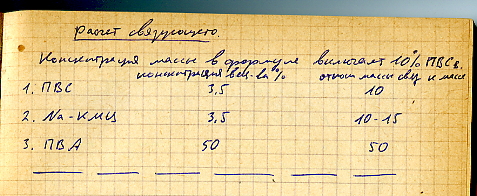 Расчет связующего.
Концентрация массы в формуле включает 10% ПВС в.
концентрация вещ-ва % отнош массы свц к массе
1. ПВС 3,5 10
2. Na-КМЦ 3,5 10-15
3. ПВА 50 50